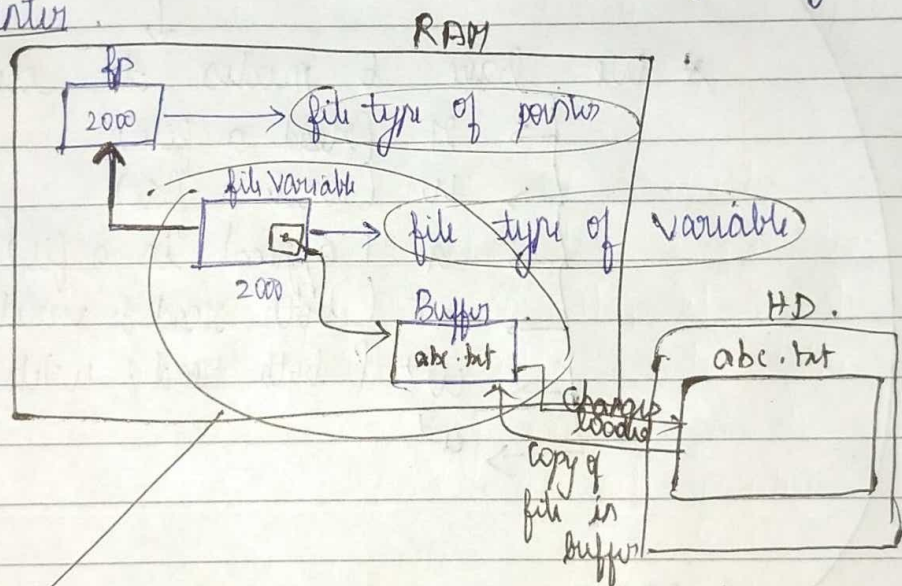 RAM
fp
2000
file type of pointer
file variable
file type of variable
2000
Buffer
abc.txt
HD.
abc.txt
changes
loaded
copy of
file in
buffer